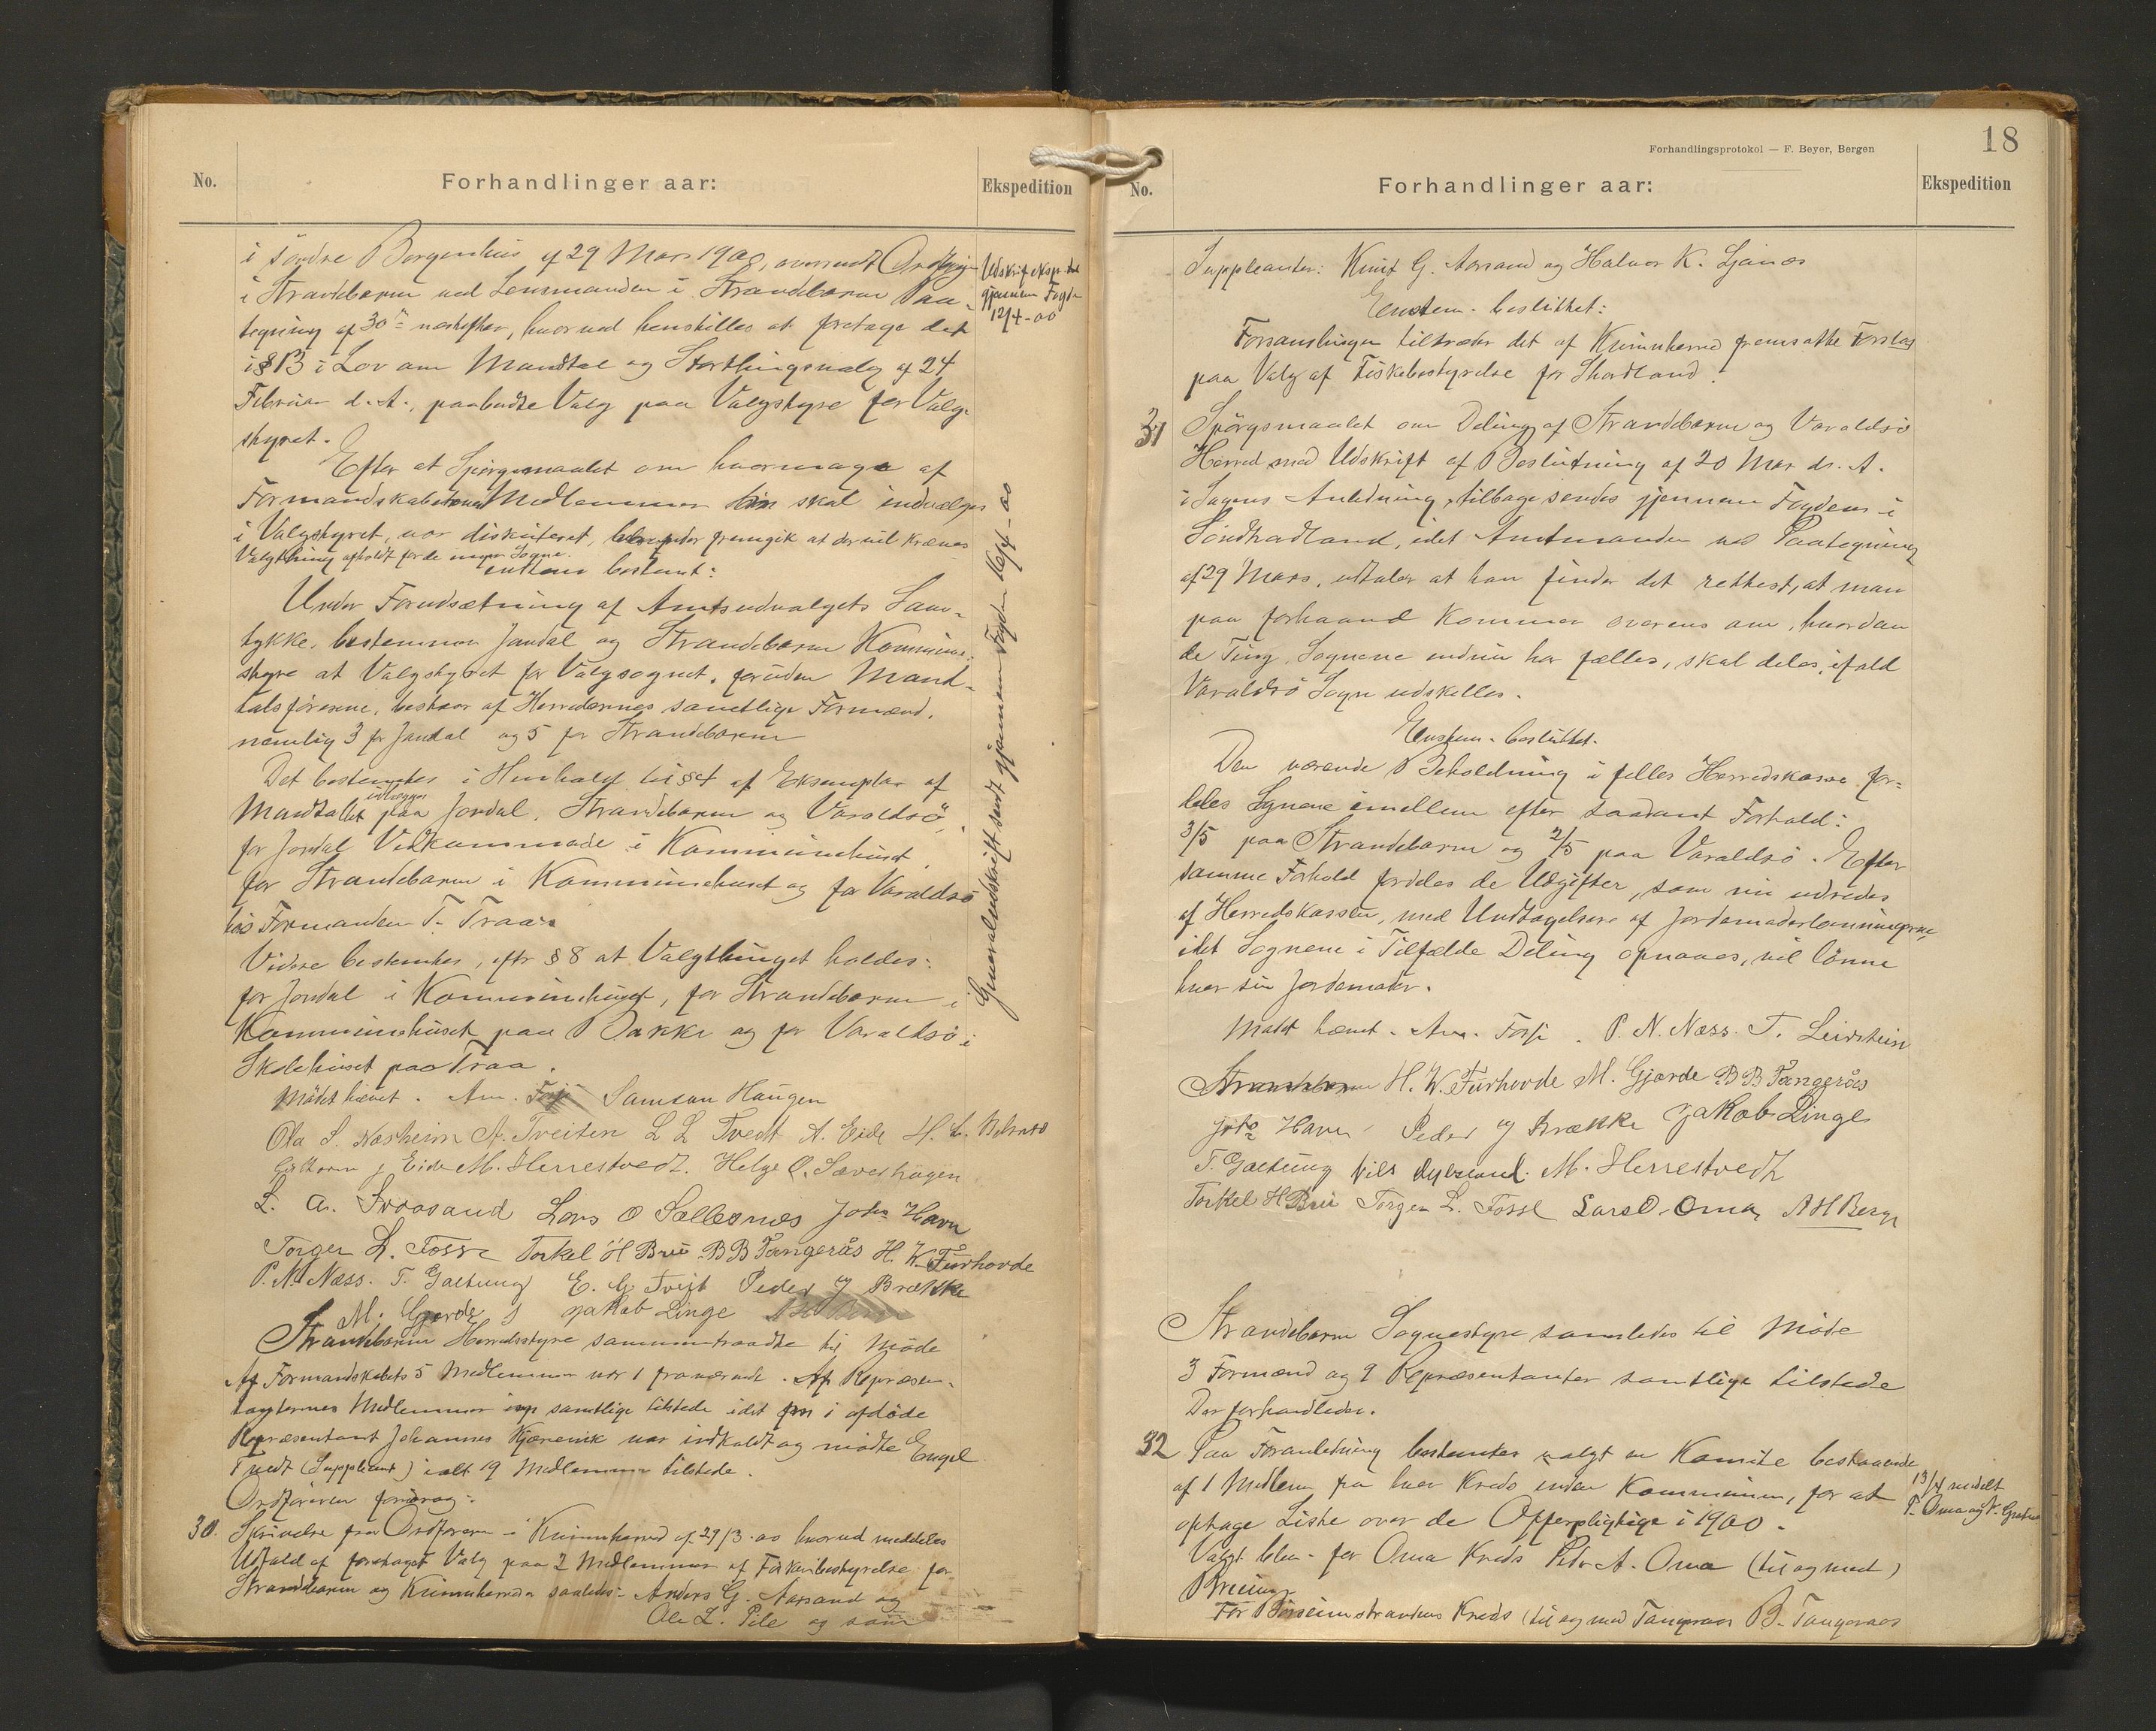 No.
Forhandlinger aar:
Ekspedition
i Söndre Bergenhus af 29 Mars 1900, oversendt Ordföreren
i Strandebarm ved Lensmanden i Strandebarm Paa-
tegning af 30te nesthefter, hvorved henstilles at foretage det
i § 13 i Lov om Mandtal og Storthingsvalg af 24
Februar d. A., paabudte Valg paa Valgstyre for Valg-
styret.
Efter at Spörgsmaalet om hvormage af
Formandskabernes Medlemmer skal indvælges
i Valgstyret, var diskuteret, fremgik at der vil kræves
Valgthing afholdt for de Sogne.
bestemt:
Under Forudsætning af Amtsudvalgets Sam-
tykke, bestemmer Jondal og Strandebarm Kommune-
styre at Valgstyret for Valgsognet, foruden Mand-
talsförerne, bestaar af Herredernes samtlige Formænd,
nemlig 3 for Jondal og 5 for Strandebarm
Det bestemtes i Henhold til § 4 af Eksemplar af
Mandtallet udlægges paa Jondal, Strandebarm og Varaldsö,
for Jondal Vedkommade i Kommunehuset,
for Strandebarm i Kommunehuset og for Varaldsö
hos Formanden T. Traa
Videre bestemtes, eftr § 8 at Valgthinget holdes:
for Jondal i Kommunehuset, for Strandebarm i
Kommunehuset paa Bakke og for Varaldsö i
Skolehuset paa Traa.
Mödet hævet. Am. Fosse Samson Haugen
Ola S. Næsheim A. Treiten L L Tvedt A. Eide H. L.
Eide M. Herrestvedt. Helge O. Sæverhagen
L. A. Svaasand Lars O Sollesnes John Havn
Torger L. Fosse Torkel H Bru B B Tangerås H. W. Furhovde
P. N. Næss. T. Gaetung E. G. Tveit Peder J Brække
M. Gjerde Jakob Linge
Strandebarm Herredsstyre sammentraadte til Möde
Af Formandskabets 5 Medlemmer var 1 fraværende. Af Repræsen-
tanternes Medlemmer samtlige tilstede idet i afdöde
Repræsentant Johannes Kjærevik var indkaldt og mödte Engel
Tvedt (Suppleant) ialt 19 Medlemmer tilstede.
Ordföreren foredrog:
30. Skrivelse fra Ordföreren i Kvinnherred af 29/3.00 hvorved meddeles
Udfald af foretaget Valg paa 2 Medlemmer af Fiskeribestyrelse for
Strandebarm og Kvinnherred saaledes: Anders G. Aarsand og
Ole L. Pile og som
Udskrift eksp.
gjennem Fogden
12/4-00
Generaludskrift sendt gjennem Fogden 16/4-00
18
Forhandlingsprotokol — F. Beyer, Bergen
No.
Forhandlinger aar:
Ekspedition
Suppleanter: Knut G. Aarsand og Halvor K. Ljånos
Enstem. besluttet:
Forsamlingen tiltræder det af Kvinnherred fremsatte Forslag
paa Valg af Fiskebestyrelse for Skordland.
31 Spörgsmaalet om Deling af Strandebarm og Varaldsö
Herred med Udskrift af Beslutning af 20 Mars ds. A.
i Sagens Anledning, tilbagesendes gjennem Fogden i
Söndhordland, idet Amtmanden ved Paategning
af 29 Mars, udtaler at han finder det rettest, at man
paa forhaand kommer overens om, hvordan
de Ting Sognene endnu har fælles, skal deles, ifald
Varaldsö Sogn udskilles.
Enstem. besluttet.
Den værende Beholdning i felles Herredskasse for-
deles Sognene imellem efter saadant Forhold:
3/5 paa Strandebarm og 2/5 paa Varaldsö. Efter
samme Forhold fordeles de Udgifter, som nu udredes
af Herredskassen, med Undtagelsen af Jordemoderlønningerne,
idet Sognene i Tilfælde Deling opnaaes, vil lönne
hver sin Jordemoder.
Mödet hævet. Am. Fosse. P. N. Næss. T. Leirstein
Strandebarm H. W. Furhovde M. Gjerde B B Tangerås
John Havn Peder J Brække Jakob Linge
T. Gaetung Nils M. Herrestvedt
Torkel H Bru Torger L. Fosse Lars O. Oma A H Berge
Strandebarm Sognestyre samledes til Möde
3 Formænd og 9 Repræsentanter samtlige tilstede
Der forhandledes.
32 Paa Foranledning bestemtes valgt en Komite bestaaende
af 1 Medlem fra hver Kreds inden Kommunen, for at
optage Liste over de Offerpligtige i 1900.
Valgt blev: for Oma Kreds Peder A. Oma (til og med)
Breivig
For Börseimstrandens Kreds (til og med Tangeraas B. Tangeraas
19/4 meddelt
P. Oma og